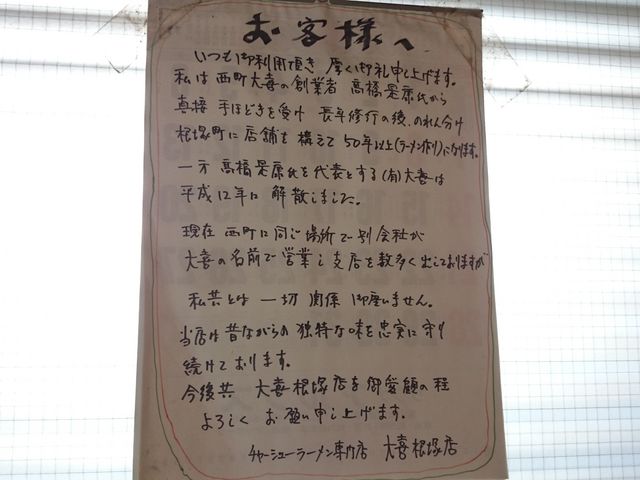 お客様へ
いつも御利用頂き 厚く御礼申し上げます。
私は 西町大喜の創業者 高橋是康氏から
直接 手ほどきを受け 長年修行の後、のれん分け
根塚町に店舗を構えて 50年以上(ラーメン作り)になります。
一方 高橋是康氏を代表とする(有)大喜は
平成12年に 解散しました。
現在 西町に同じ場所で別会社が
大喜の名前で営業し支店を数多く出しておりますが
私共とは 一切 関係 御座いません。
当店は昔ながらの独特な味を忠実に守り
続けております。
今後共 大喜根塚店を御愛顧の程
よろしく お願い申し上げます。
チャーシューラーメン専門店 大喜根塚店